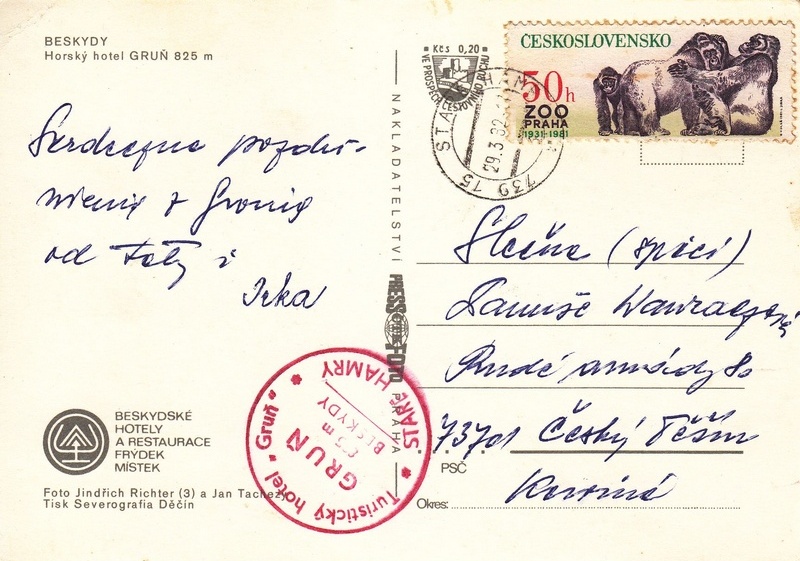 BESKYDY
Horský hotel GRUŇ 825 m
Kčs 0,20
VE PROSPĚCH CESTOVNÍHO RUCHU
ČESKOSLOVENSKO
50h
ZOO
PRAHA
1931-1981
STARÉ HAMRY
29.3.82
739 15
Serdeczne pozdro-
wienia z Gronia
od Taty i
Irka
NAKLADATELSTVÍ PRESSFOTO PRAHA
Slečna (spící)
Danuše
Rudé armády
73701 Český Těšín
PSČ
Karviná
Okres:
Turistický hotel "Gruň"
STARÉ HAMRY
GRUŇ
825 m
BESKYDY
BESKYDSKÉ
HOTELY
A RESTAURACE
FRÝDEK
MÍSTEK
Foto Jindřich Richter (3) a Jan Tachezy
Tisk Severografia Děčín